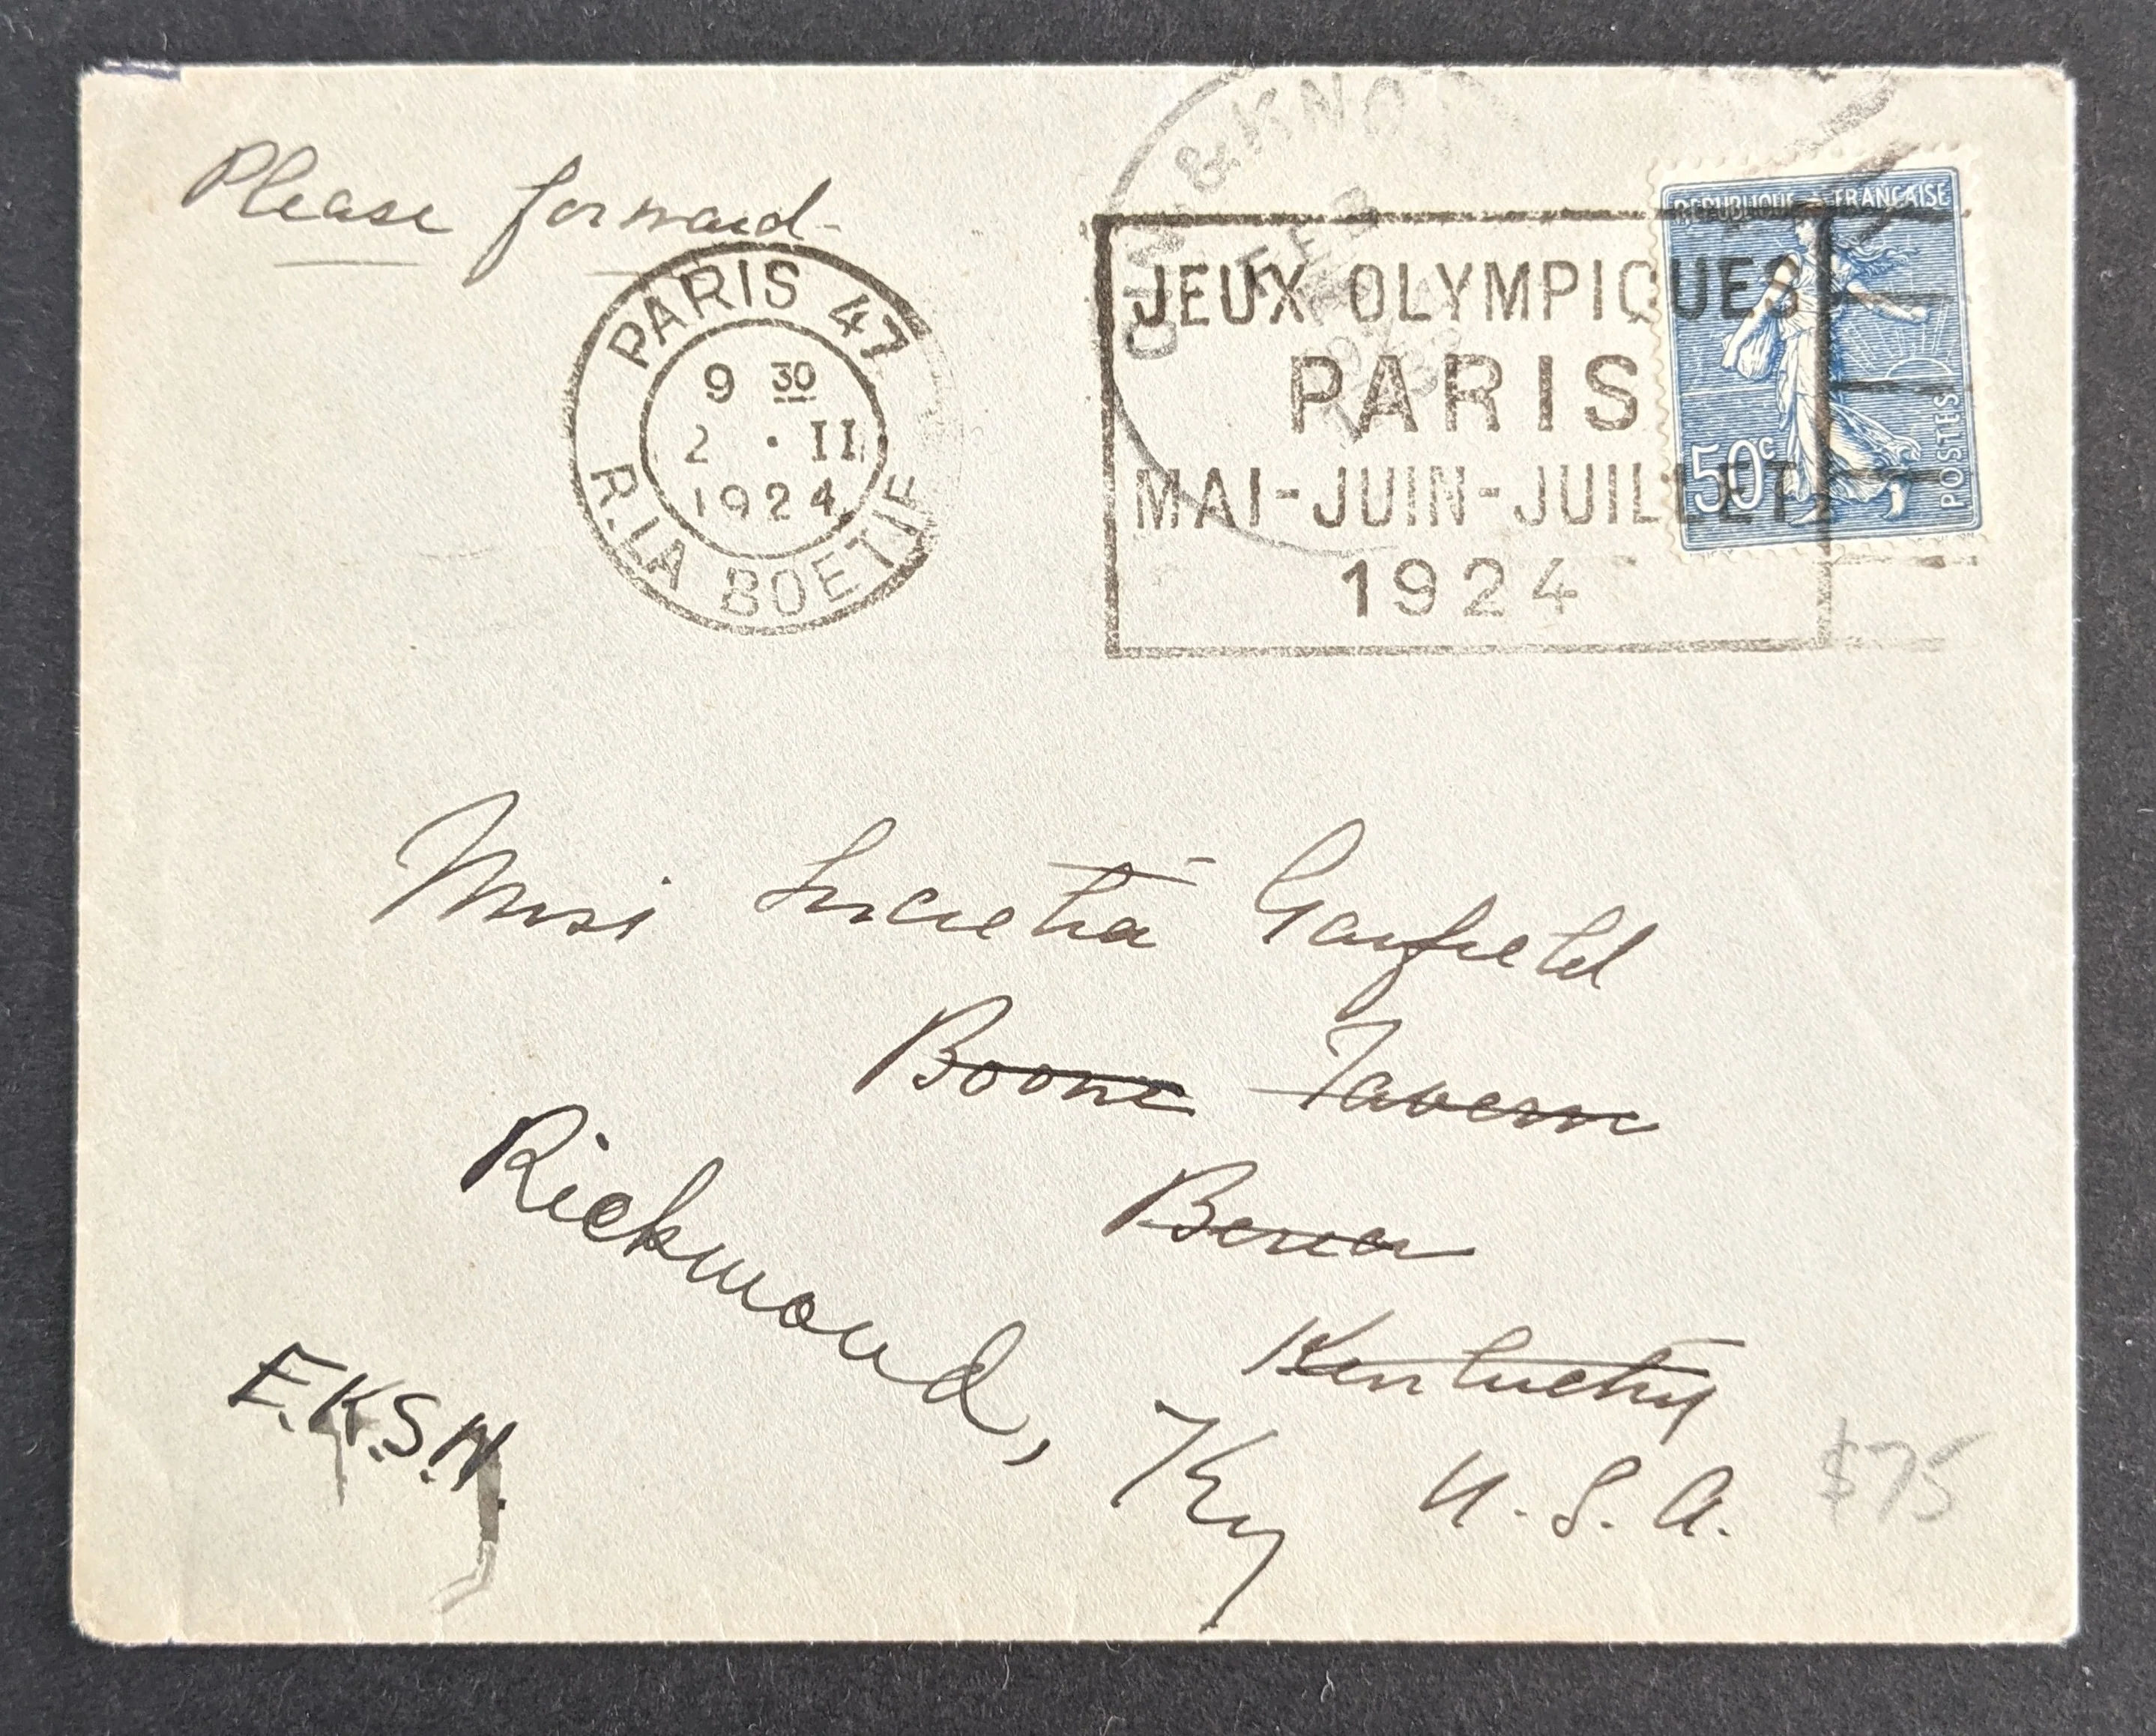 Please forward
PARIS 47
9 30
2 • II
1924
R. LA BOETIE
CIN. & KNO
FEB
JEUX OLYMPIQUES
PARIS
MAI-JUIN-JUILLET
1924
REPUBLIQUE FRANÇAISE
50c
POSTES
Miss Lucretia Garfield
Boone Tavern
Berea
Kentucky
U.S.A.
Richmond, Ky
E.K.S.N.
$75